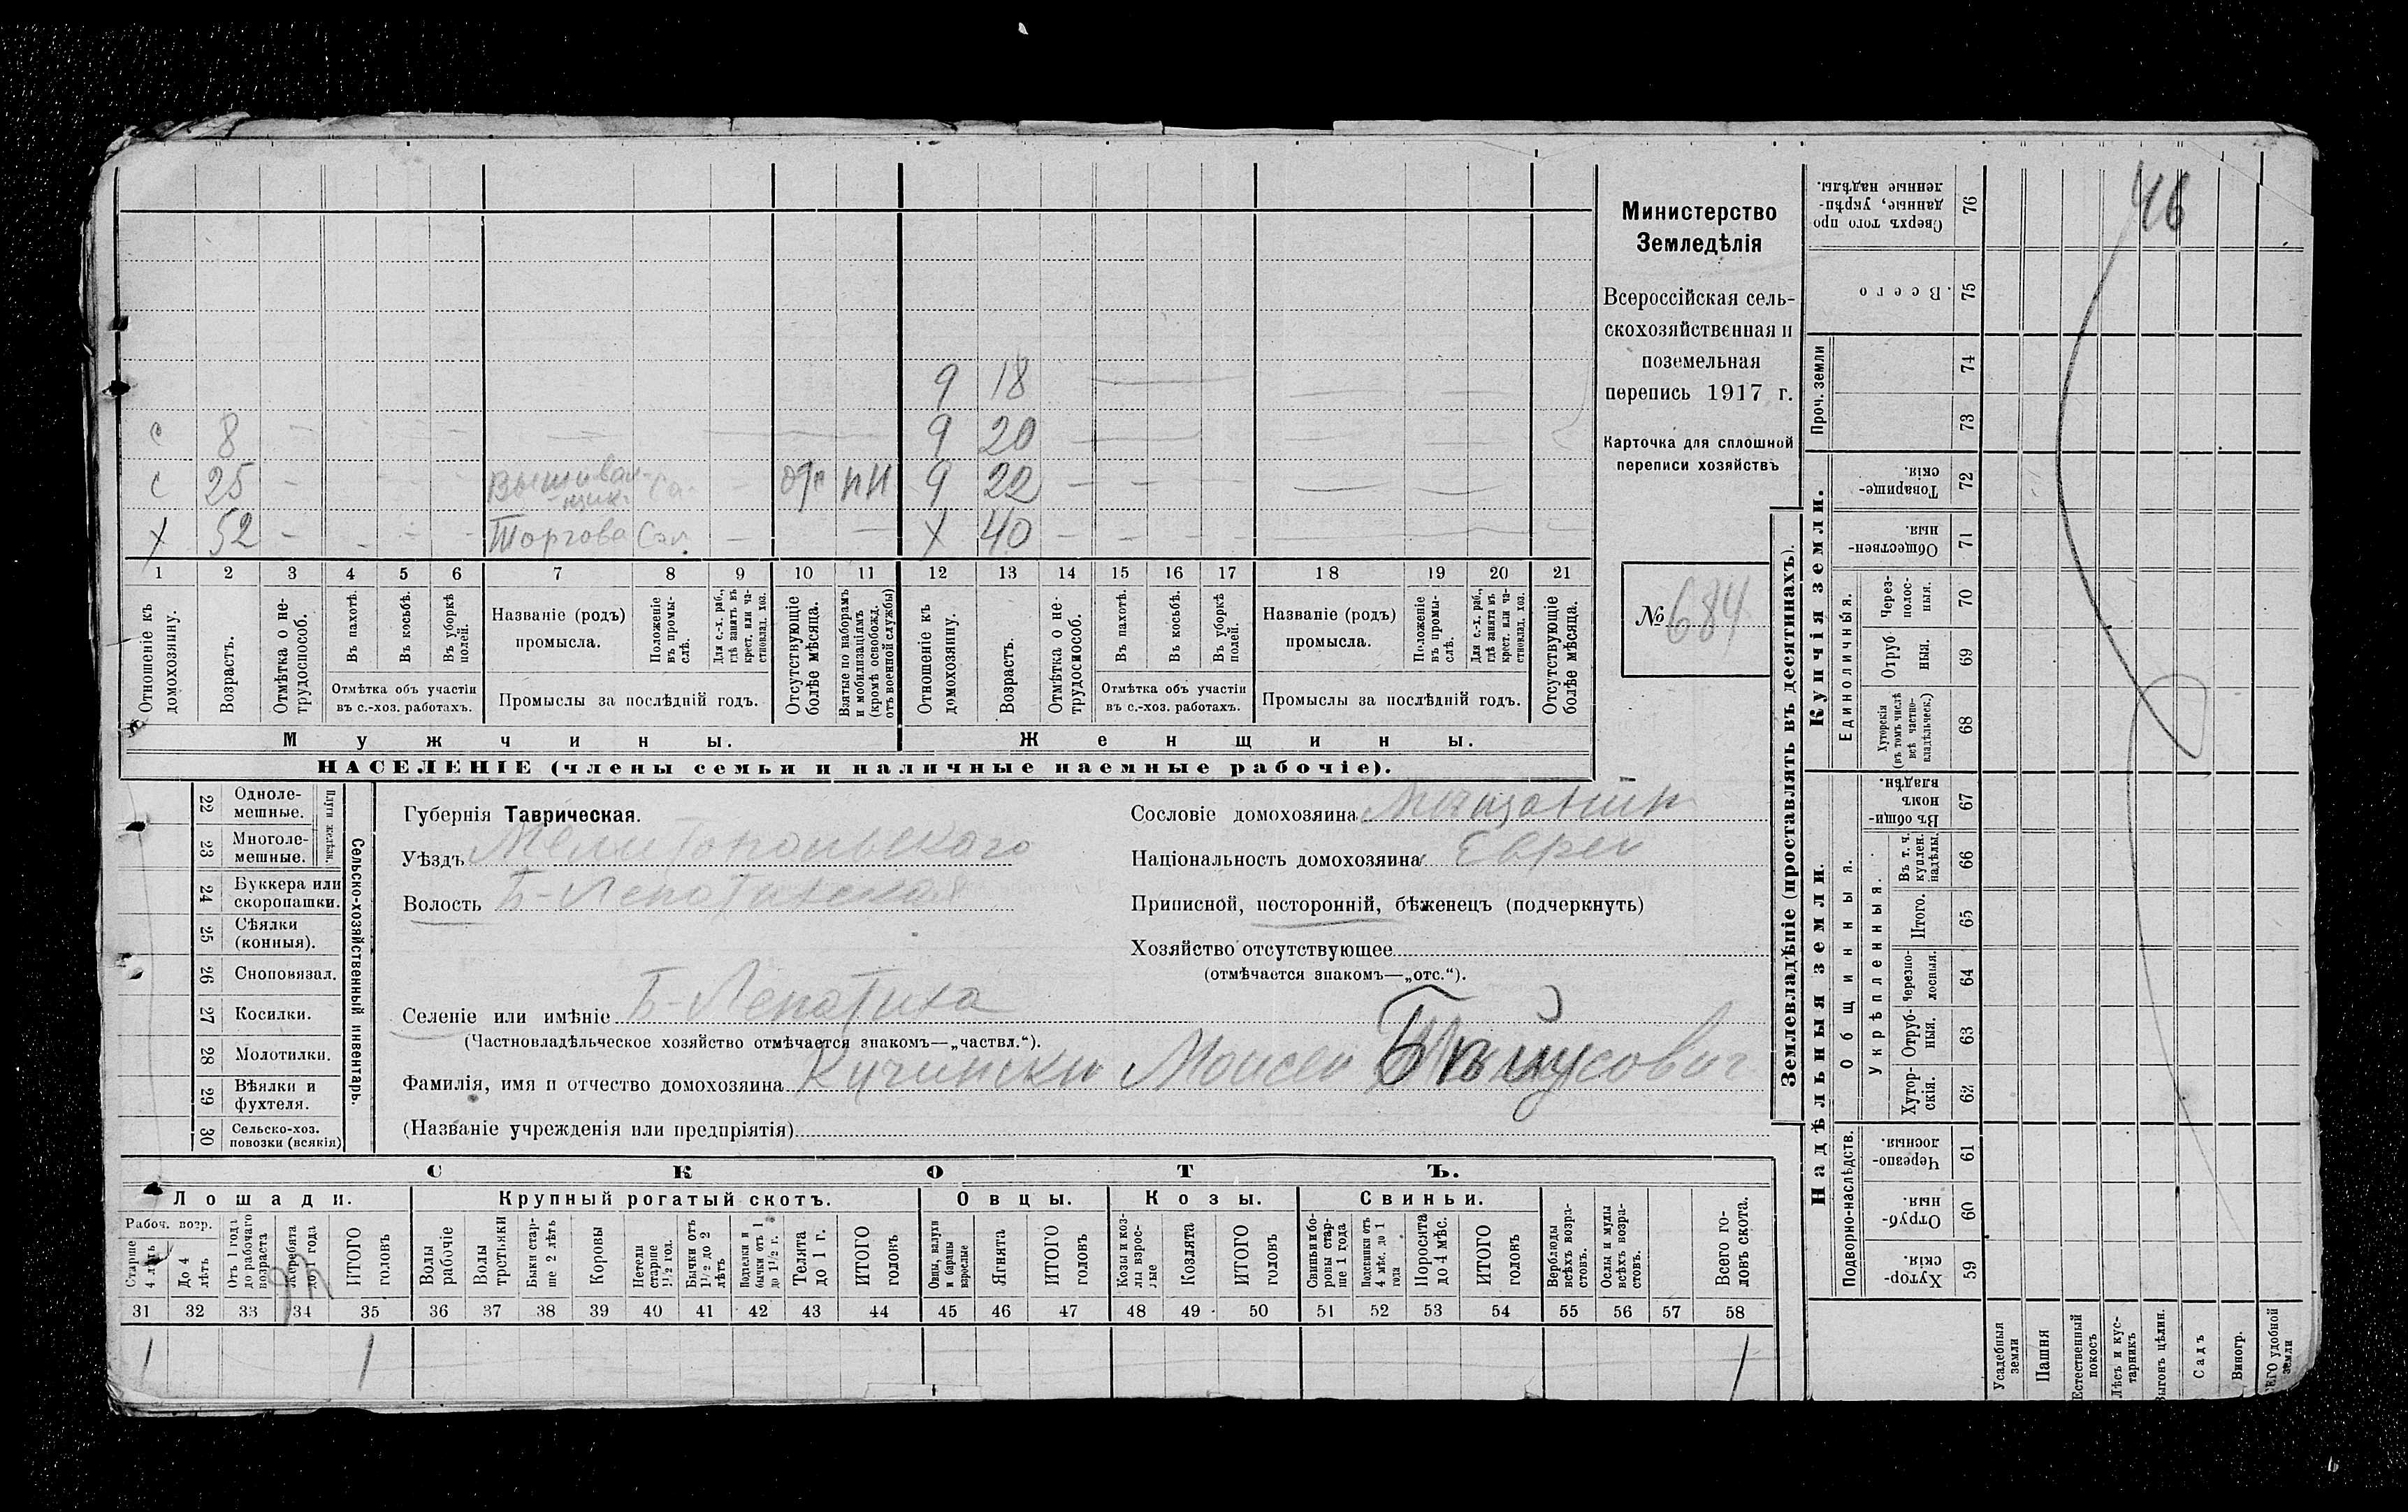 Министерство
Земледѣлія
Всероссійская сель-
скохозяйственная и
поземельная
перепись 1917 г.
Карточка для сплошной
переписи хозяйствъ
№ 684
46
9 18
с 8 9 20
с 25 Вышиваль-
щик отс 9 22
х 52 Торговля х 40
1 2 3 4 5 6 7 8 9 10 11 12 13 14 15 16 17 18 19 20 21
Отношеніе къ домохозяину.
Возрастъ.
Отмѣтка о не-трудоспособ.
Въ пахотѣ.
Въ косьбѣ.
Въ уборкѣ полей.
Отмѣтка объ участіи
въ с.-хоз. работахъ.
Названіе (родъ)
промысла.
Положеніе въ промы-слѣ.
Для с.-х. раб., гдѣ занятъ въ крест. или ча-стновлад. хоз.
Промыслы за послѣдній годъ.
Отсутствующіе болѣе мѣсяца.
Взятые по наборамъ и мобилизаціямъ (кромѣ освобожд. отъ военной службы)
Отношеніе къ домохозяину.
Возрастъ.
Отмѣтка о не-трудоспособ.
Въ пахотѣ.
Въ косьбѣ.
Въ уборкѣ полей.
Отмѣтка объ участіи
въ с.-хоз. работахъ.
Названіе (родъ)
промысла.
Положеніе въ промы-слѣ.
Для с.-х. раб., гдѣ занятъ въ крест. или ча-стновлад. хоз.
Промыслы за послѣдній годъ.
Отсутствующіе болѣе мѣсяца.
Мужчины.
Женщины.
НАСЕЛЕНІЕ (члены семьи и наличные наемные рабочіе).
22 Одноле-мешные.
23 Многоле-мешные.
Плуги желѣзн.
24 Буккера или скоропашки.
25 Сѣялки (конныя).
26 Сноповязал.
27 Косилки.
28 Молотилки.
29 Вѣялки и фухтеля.
30 Сельско-хоз. повозки (всякія)
Сельско-хозяйственный инвентарь.
Губернія Таврическая.
Уѣздъ Мелитопольского
Волость Б-Лепатихская
Селеніе или имѣніе Б-Лепатиха
(Частновладѣльческое хозяйство отмѣчается знакомъ—„частвл.“).
Фамилія, имя и отчество домохозяина Кичински Моисей
(Названіе учрежденія или предпріятія)
Сословіе домохозяина Мѣщанин
Національность домохозяина Еврей
Приписной, посторонній, бѣженецъ (подчеркнуть)
Хозяйство отсутствующее
(отмѣчается знакомъ—„отс.“).
СКОТЪ.
Лошади.
Крупный рогатый скотъ.
Овцы.
Козы.
Свиньи.
Рабоч. возр.
Старше 4 лѣтъ
До 4 лѣтъ
Отъ 1 года до рабочаго возраста
Жеребята до 1 года
ИТОГО головъ
Волы рабочіе
Волы третьяки
Быки стар-ше 2 лѣтъ
Коровы
Нетели старше 1½ год.
Бычки отъ 1½ до 2 лѣтъ
Водтелки и бычки отъ 1 до 1½ г.
Телята до 1 г.
ИТОГО головъ
Овцы, валухи и бараны взрослые
Ягнята
ИТОГО головъ
Козы и коз-лы взрос-лые
Козлята
ИТОГО головъ
Свиньи и бо-ровы стар-ше 1 года
Подсвинки отъ 4 мѣс. до 1 года
Поросята до 4 мѣс.
ИТОГО головъ
Верблюды всѣхъ возра-стовъ.
Ослы и мулы всѣхъ возра-стовъ.
Всего го-ловъ скота.
31 32 33 34 35 36 37 38 39 40 41 42 43 44 45 46 47 48 49 50 51 52 53 54 55 56 57 58
1 1 1
Землевладѣніе (проставлять въ десятинахъ).
Купчія земли.
Надѣльныя земли.
Сверхъ того про данные, укрѣп-ленные надѣлы. 76
Всего. 75
Проч. земли
74
73
Товарище-скія. 72
Обществен-ныя. 71
Единоличныя.
Через-полос-ныя. 70
Отруб ныя. 69
Хуторскія (въ томъ числѣ всѣ частно-владѣльческ.) 68
Общинныя.
Въ общи-номъ владѣн. 67
Укрѣпленныя.
Въ т. ч. куплен. надѣлы. 66
Итого. 65
Черезпо-лосныя. 64
Отруб-ныя. 63
Хутор-скія. 62
Подворно-наслѣдств.
Черезпо-лосныя. 61
Отруб-ныя. 60
Хутор-скія. 59
Усадебныя земли
Пашня
Естественный покосъ
Лѣсъ и кус-тарникъ
Выгонъ цѣлин.
Садъ
Виногр.
ВСЕГО удобной земли